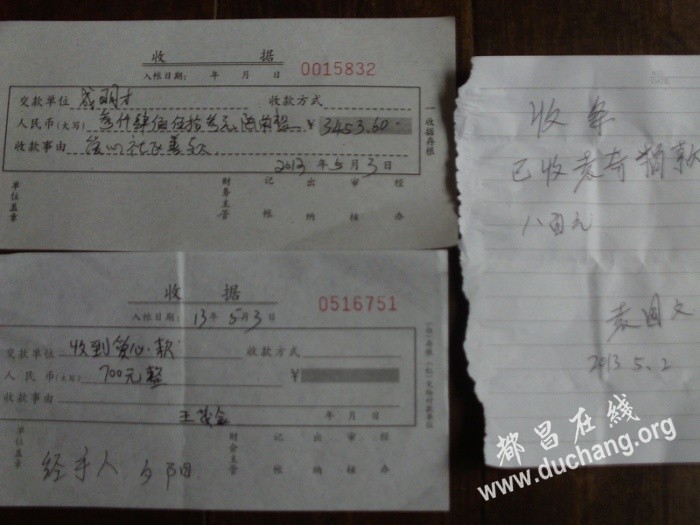 收 据
入帐日期： 年 月 日 0015832
交款单位 收款方式
人民币(大写) 叁仟肆佰伍拾叁元陆角整 ¥ 3453.60
收款事由 爱心社区善款
2013年5月3日
单位盖章 财务主管 记帐 出纳 审核 经办
一收据存根
收 据
入帐日期： 13年5月3日 0516751
交款单位 收到爱心款 收款方式
人民币(大写) 700元整 ¥
收款事由
年 月 日
单位盖章 财会主管 记帐 出纳 审核 经办
经手人 夕阳
收条
已收袁奇捐款
八百元
袁国文
2013 5.2
都昌在線
www.duchang.org